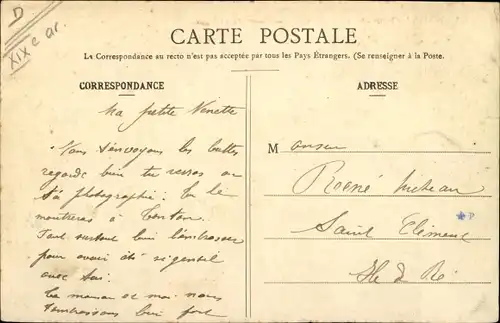 D
XIXe ar
CARTE POSTALE
La Correspondance au recto n'est pas acceptée par tous les Pays Étrangers. (Se renseigner à la Poste.
CORRESPONDANCE
Ma petite Ninette
Nous t'envoyons les buttes
regarde bien tu verras on
t'a photographié: Tu le
montreras à tonton.
Faut surtout bien l'embrasser
pour avoir été si gentil
avec toi.
Ta maman et moi nous
t'embrassons bien fort
ADRESSE
Monsieur
René
Saint Clément
Ile de Ré